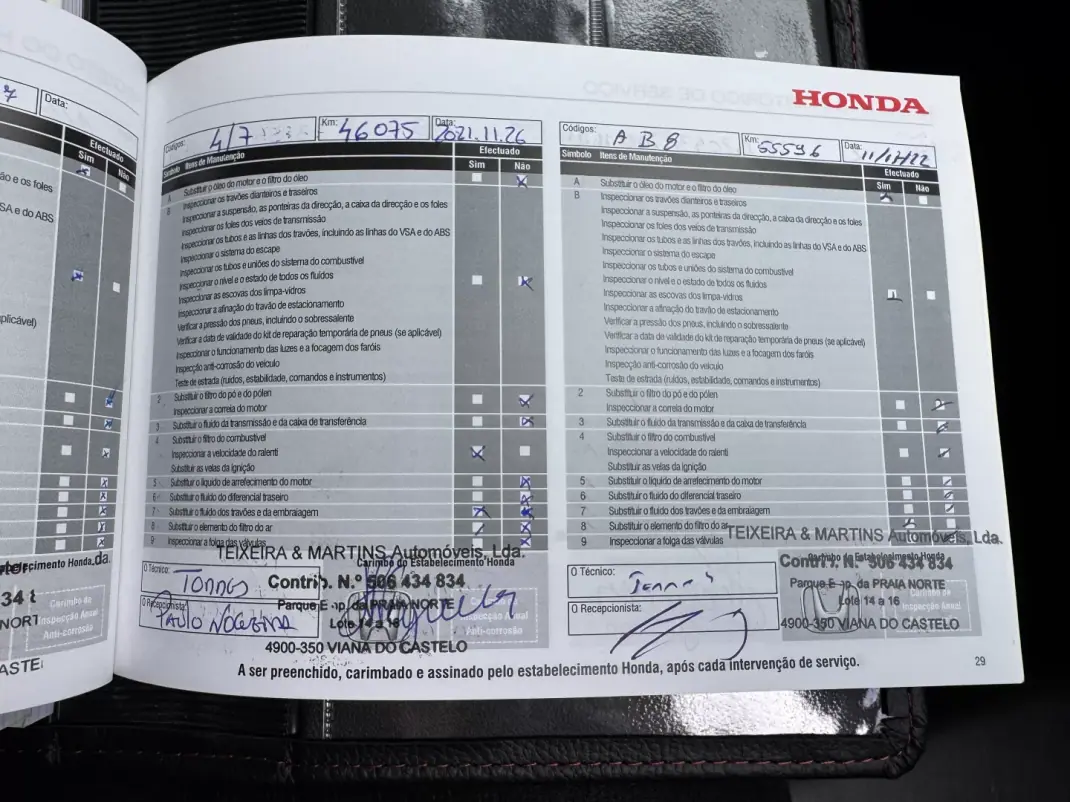 HONDA
Data:
Efectuado
Sim Não
ão e os foles
SA e do ABS
plicável)
Códigos: 4/7
Km: 46075
Data: 2021.11.26
Símbolo Itens de Manutenção
Efectuado
Sim Não
A Substituir o óleo do motor e o filtro do óleo
B Inspeccionar os travões dianteiros e traseiros
Inspeccionar a suspensão, as ponteiras da direcção, a caixa da direcção e os foles
Inspeccionar os foles dos veios de transmissão
Inspeccionar os tubos e as linhas dos travões, incluindo as linhas do VSA e do ABS
Inspeccionar o sistema do escape
Inspeccionar os tubos e uniões do sistema do combustível
Inspeccionar o nível e o estado de todos os fluídos
Inspeccionar as escovas dos limpa-vidros
Inspeccionar a afinação do travão de estacionamento
Verificar a pressão dos pneus, incluindo o sobressalente
Verificar a data de validade do kit de reparação temporária de pneus (se aplicável)
Inspeccionar o funcionamento das luzes e a focagem dos faróis
Inspecção anti-corrosão do veículo
Teste de estrada (ruídos, estabilidade, comandos e instrumentos)
2 Substituir o filtro do pó e do pólen
Inspeccionar a correia do motor
3 Substituir o fluído da transmissão e da caixa de transferência
4 Substituir o filtro do combustível
Inspeccionar a velocidade do ralenti
Substituir as velas da ignição
5 Substituir o líquido de arrefecimento do motor
6 Substituir o fluído do diferencial traseiro
7 Substituir o fluído dos travões e da embraiagem
8 Substituir o elemento do filtro do ar
9 Inspeccionar a folga das válvulas
TEIXEIRA & MARTINS Automóveis, Lda.
Carimbo do Estabelecimento Honda
Contrib. N.º 506 434 834
Parque Emp. da PRAIA NORTE
Lote 14 a 16
4900-350 VIANA DO CASTELO
Carimbo da
Inspecção Anual
Anti-corrosão
O Técnico:
O Recepcionista: PAULO NOGUEIRA
Códigos: A B 8
Km: 65596
Data:
Símbolo Itens de Manutenção
Efectuado
Sim Não
A Substituir o óleo do motor e o filtro do óleo
B Inspeccionar os travões dianteiros e traseiros
Inspeccionar a suspensão, as ponteiras da direcção, a caixa da direcção e os foles
Inspeccionar os foles dos veios de transmissão
Inspeccionar os tubos e as linhas dos travões, incluindo as linhas do VSA e do ABS
Inspeccionar o sistema do escape
Inspeccionar os tubos e uniões do sistema do combustível
Inspeccionar o nível e o estado de todos os fluídos
Inspeccionar as escovas dos limpa-vidros
Inspeccionar a afinação do travão de estacionamento
Verificar a pressão dos pneus, incluindo o sobressalente
Verificar a data de validade do kit de reparação temporária de pneus (se aplicável)
Inspeccionar o funcionamento das luzes e a focagem dos faróis
Inspecção anti-corrosão do veículo
Teste de estrada (ruídos, estabilidade, comandos e instrumentos)
2 Substituir o filtro do pó e do pólen
Inspeccionar a correia do motor
3 Substituir o fluído da transmissão e da caixa de transferência
4 Substituir o filtro do combustível
Inspeccionar a velocidade do ralenti
Substituir as velas da ignição
5 Substituir o líquido de arrefecimento do motor
6 Substituir o fluído do diferencial traseiro
7 Substituir o fluído dos travões e da embraiagem
8 Substituir o elemento do filtro do ar
9 Inspeccionar a folga das válvulas
TEIXEIRA & MARTINS Automóveis, Lda.
Carimbo do Estabelecimento Honda
Contrib. N.º 506 434 834
Parque Emp. da PRAIA NORTE
Lote 14 a 16
4900-350 VIANA DO CASTELO
Carimbo da
Inspecção Anual
O Técnico:
O Recepcionista:
A ser preenchido, carimbado e assinado pelo estabelecimento Honda, após cada intervenção de serviço.
29